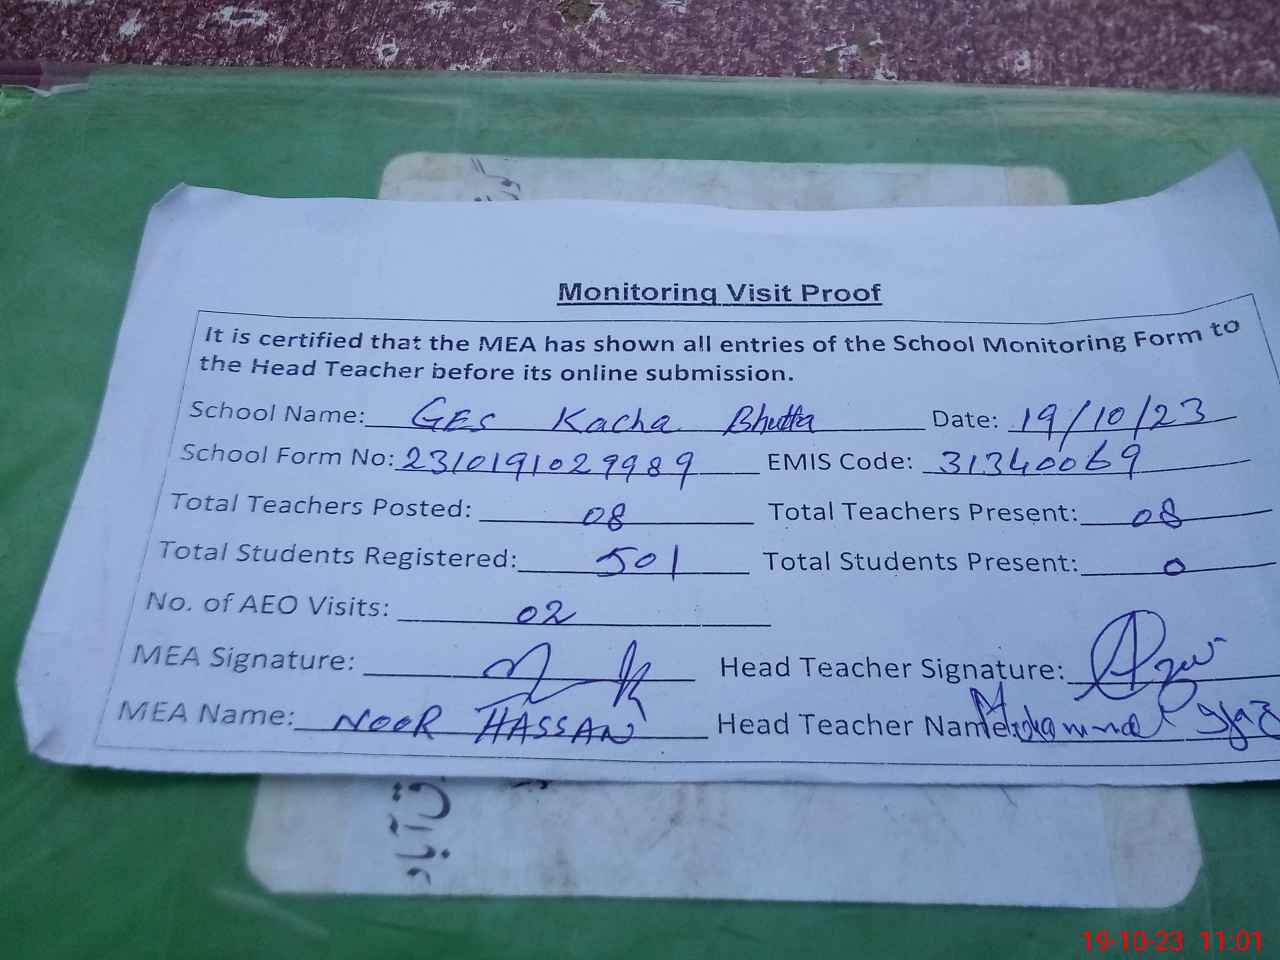 Monitoring Visit Proof
It is certified that the MEA has shown all entries of the School Monitoring Form to
the Head Teacher before its online submission.
School Name: GES Kacha Bhutta Date: 19/10/23
School Form No: 2310191029989 EMIS Code: 31340069
Total Teachers Posted: 08 Total Teachers Present: 08
Total Students Registered: 501 Total Students Present: 0
No. of AEO Visits: 02
MEA Signature: Head Teacher Signature:
MEA Name: NOOR HASSAN Head Teacher Name: Muhammad Ijaz
19-10-23 11:01